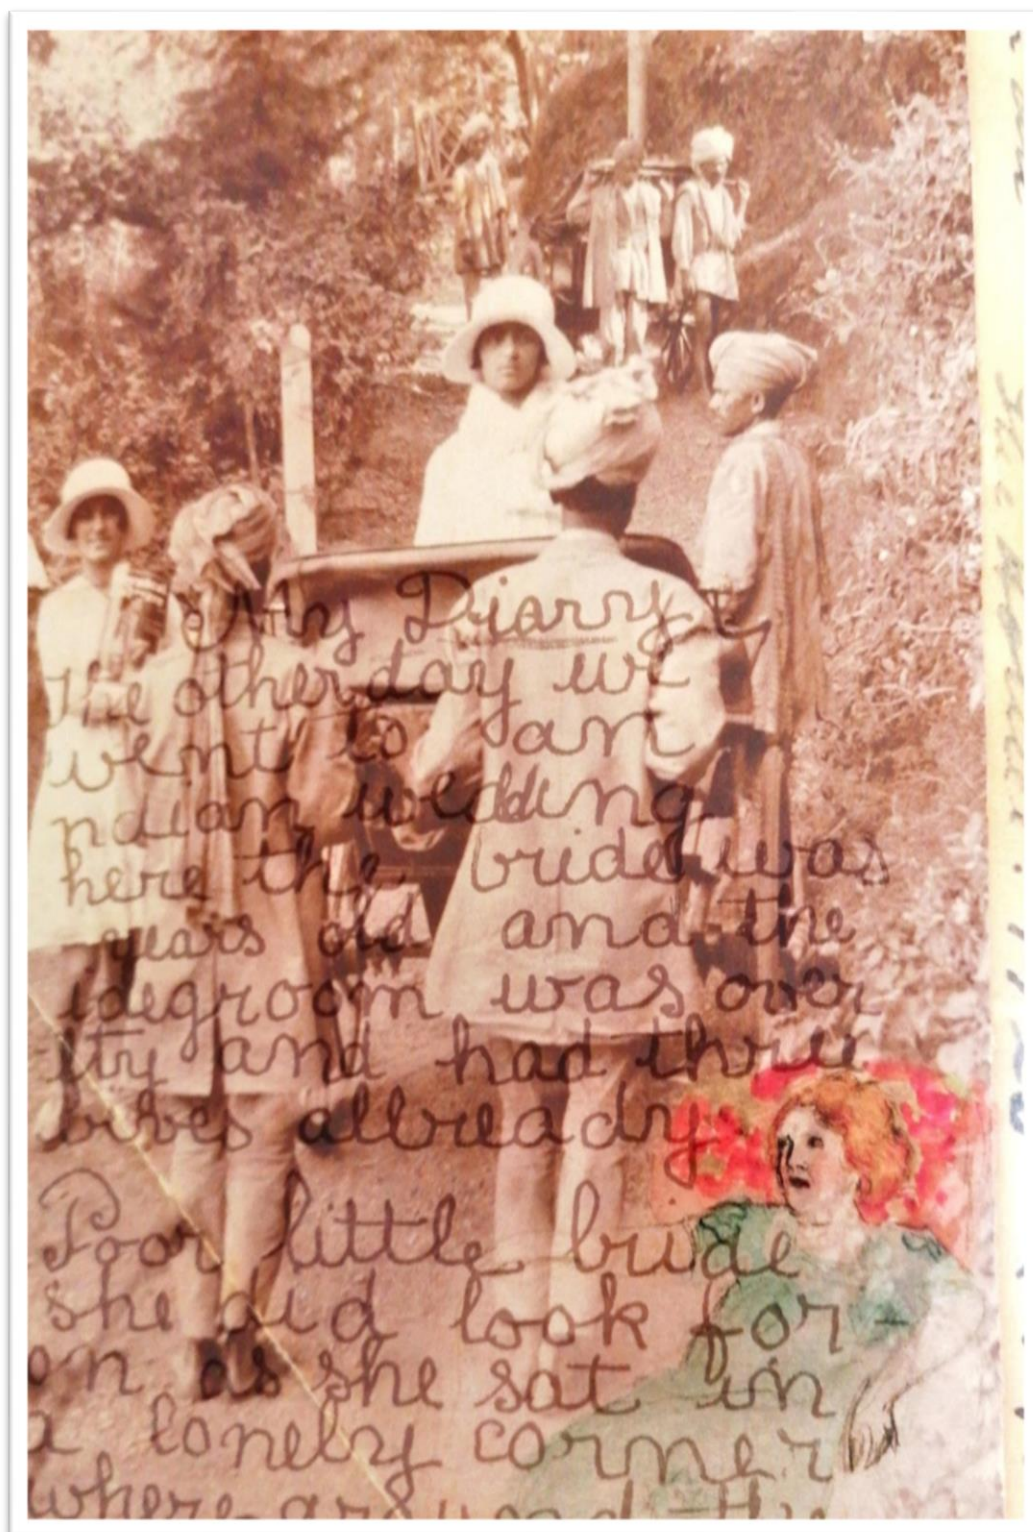 My Diary
The other day we
went to an
ndian wedding
here the bride was
years old and the
idegroom was over
fty and had three
wives allready
Poor little bride
she did look for-
on as she sat in
a lonely corner
where around the